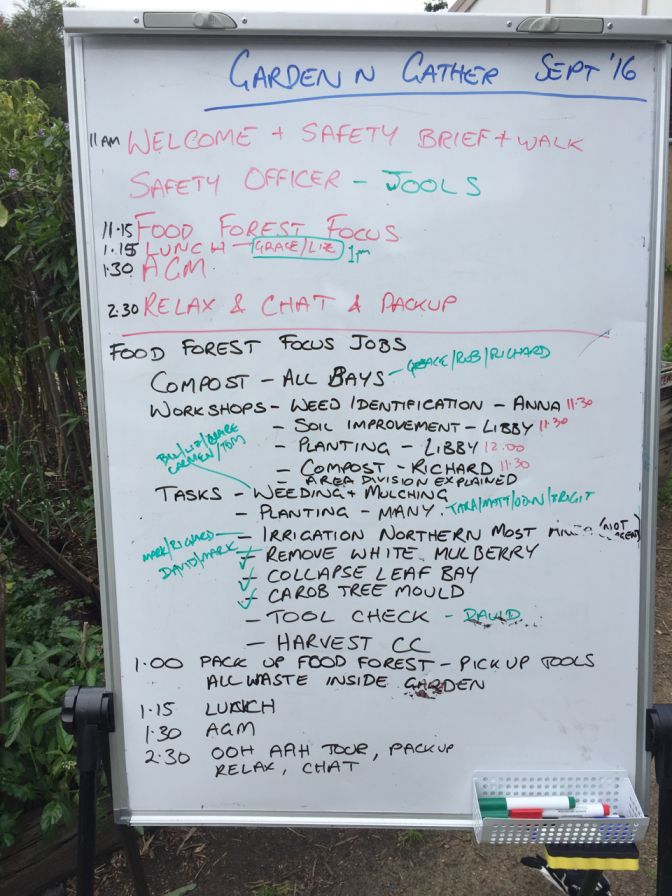 GARDEN N GATHER SEPT '16
11AM WELCOME + SAFETY BRIEF + WALK
SAFETY OFFICER - JOOLS
11.15 FOOD FOREST FOCUS
1.15 LUNCH - GRACE/LIZ 1pm
1.30 AGM
2.30 RELAX & CHAT & PACKUP
FOOD FOREST FOCUS JOBS
COMPOST - ALL BAYS - GRACE/ROB/RICHARD
WORKSHOPS - WEED IDENTIFICATION - ANNA 11.30
- SOIL IMPROVEMENT - LIBBY 11.30
- PLANTING - LIBBY 12.00
- COMPOST - RICHARD 11.30
- AREA DIVISION EXPLAINED
CARMEN/TOM
TASKS - WEEDING + MULCHING
- PLANTING - MANY. TARA/MATT/ODIN/BRIGIT
MARK/RICHARD - IRRIGATION NORTHERN MOST (NOT
DAVID/MARK - REMOVE WHITE MULBERRY
- COLLAPSE LEAF BAY
- CAROB TREE MOULD
- TOOL CHECK - DAVID
- HARVEST CC
1.00 PACK UP FOOD FOREST - PICK UP TOOLS
ALL WASTE INSIDE GARDEN
1.15 LUNCH
1.30 AGM
2.30 OOH AAH TOUR, PACKUP
RELAX, CHAT